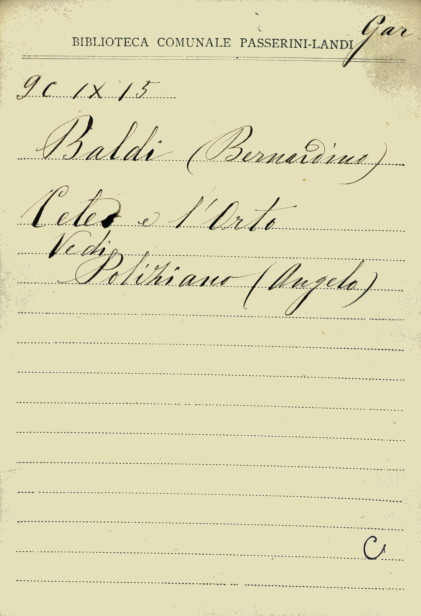 Gar
BIBLIOTECA COMUNALE PASSERINI-LANDI
9C IX 15
Baldi (Bernardino)
e l'Orto
Vedi
Poliziano (Angelo)
C